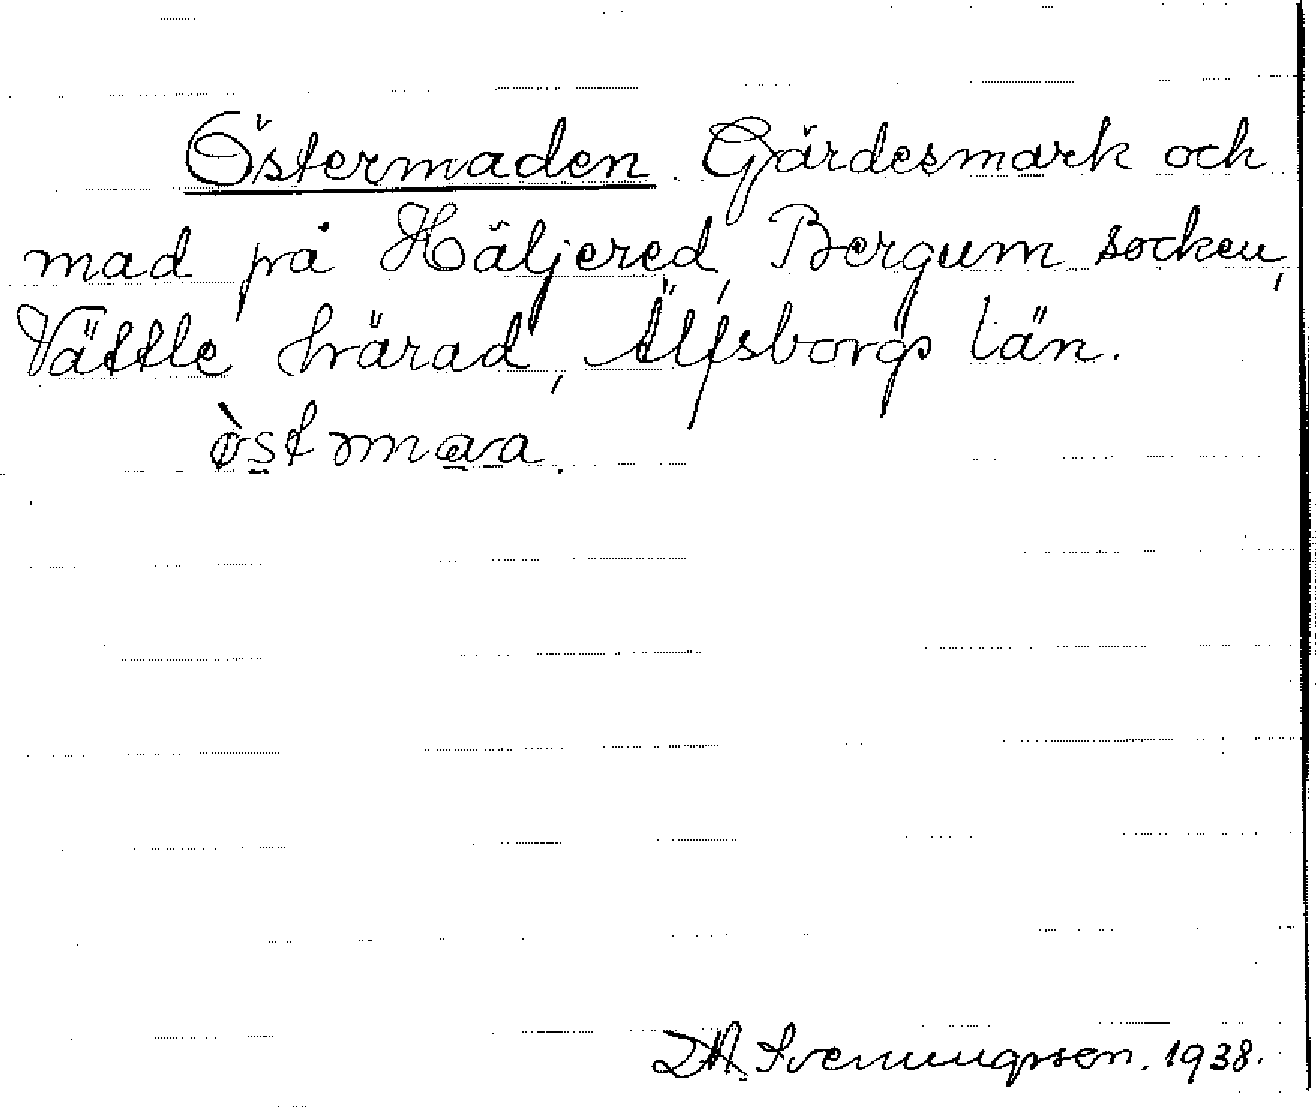 Östermaden. Gärdesmark och
mad på Häljered, Bergum socken,
Vättle härad, Älfsborgs län.
ø̀stmara.
D.A. Svenungsson. 1938.